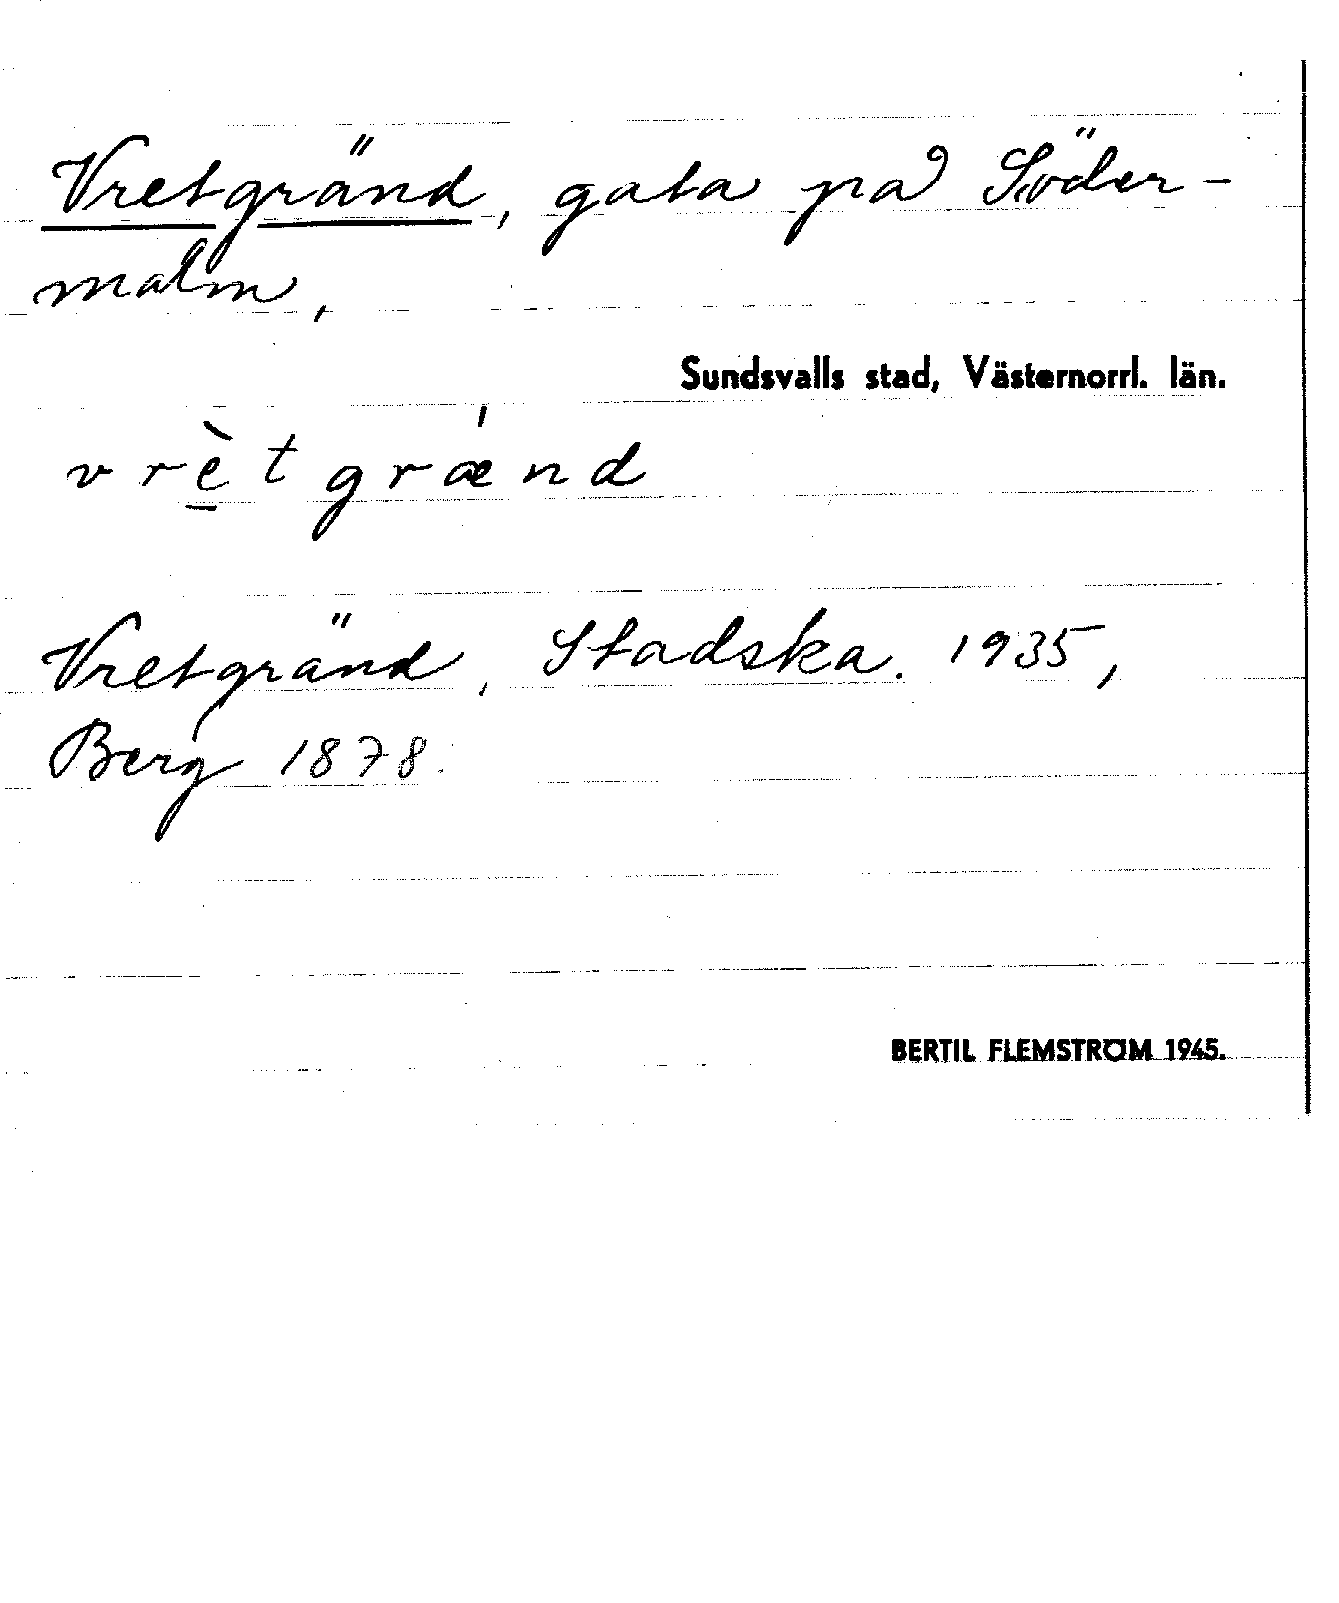 Vretgränd, gata på Söder-
malm,
Sundsvalls stad, Västernorrl. län.
vrè̱tgrǽnd
Vretgränd, Stadska. 1935,
Berg 1878.
BERTIL FLEMSTRÖM 1945.